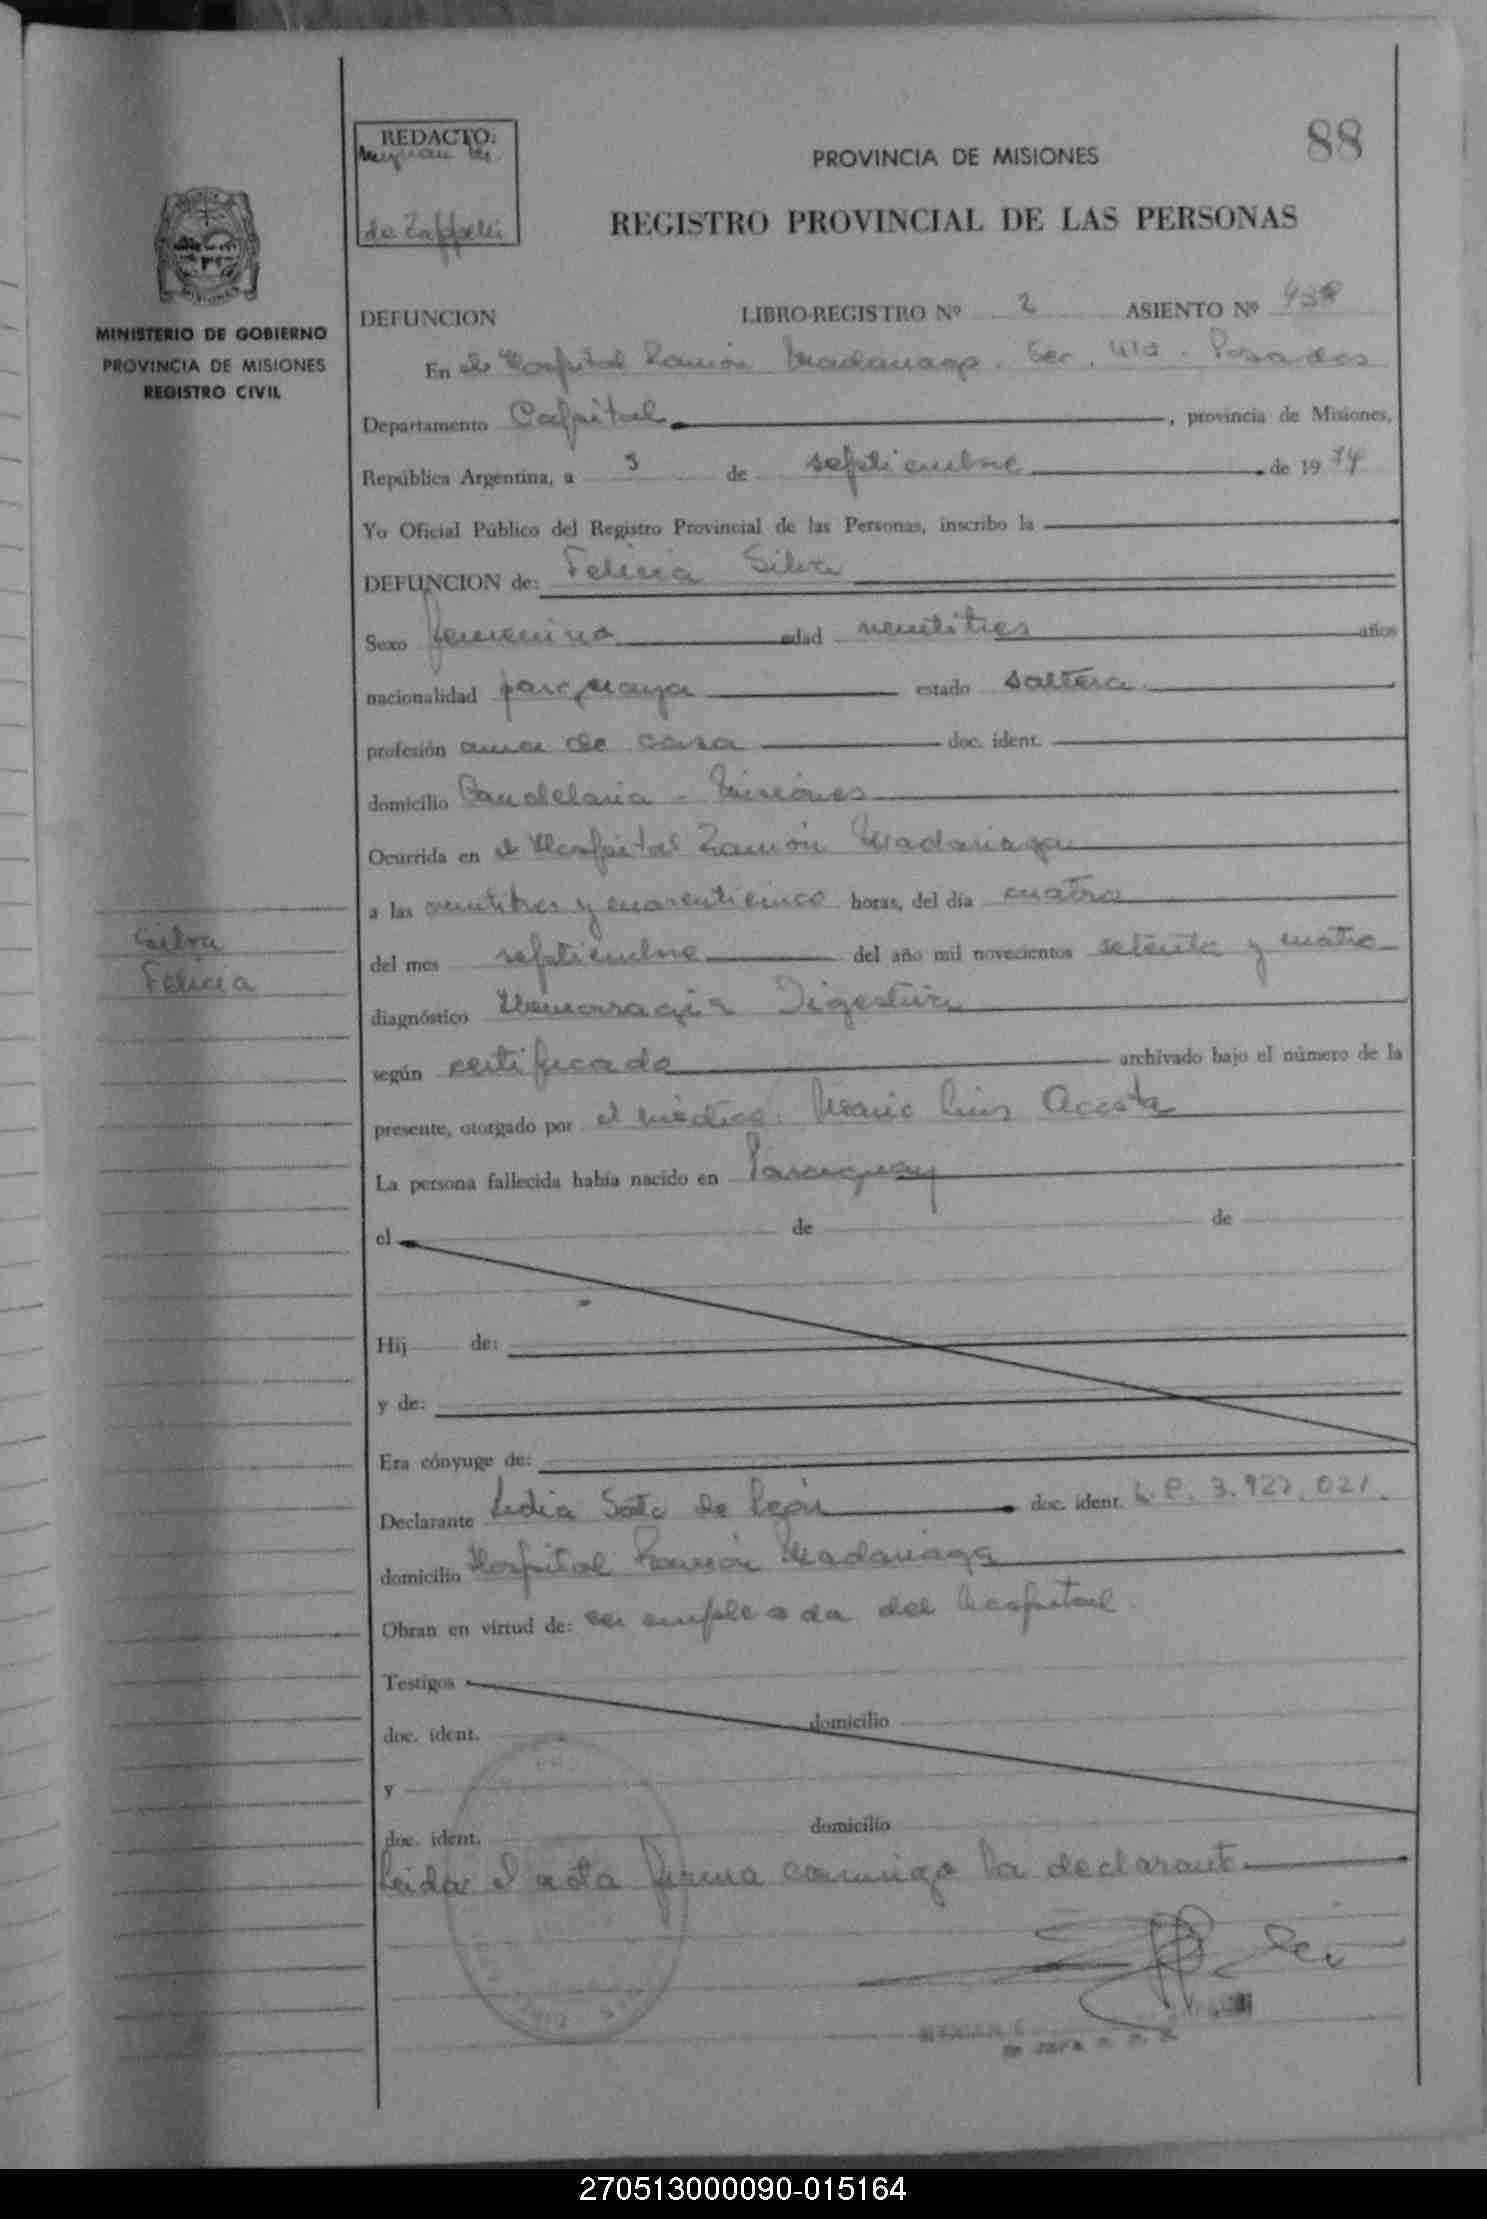 88
REDACTO:
de Zappelli
PROVINCIA DE MISIONES
REGISTRO PROVINCIAL DE LAS PERSONAS
MINISTERIO DE GOBIERNO
PROVINCIA DE MISIONES
REGISTRO CIVIL
DEFUNCION LIBRO-REGISTRO Nº 2 ASIENTO Nº
En el Hospital Ramón Madariaga. Sec. 4ta. Posadas
Departamento Capital, provincia de Misiones,
República Argentina, a 5 de septiembre de 1974
Yo Oficial Público del Registro Provincial de las Personas, inscribo la
DEFUNCION de: Felicia Silva
Sexo femenino edad veintitres años
nacionalidad paraguaya estado soltera
profesión ama de casa doc. ident.
domicilio Candelaria - Misiones
Ocurrida en el Hospital Ramón Madariaga
a las veintitres y cuarenticinco horas, del día cuatro
del mes septiembre del año mil novecientos setenta y cuatro
diagnóstico Hemorragia Digestiva
según certificado archivado bajo el número de la
presente, otorgado por el médico: Mario Luis Acosta
La persona fallecida había nacido en Paraguay
el de de
Hij de:
y de:
Era cónyuge de:
Declarante Lidia Soto de León doc. ident. L.C. 3.927.021.
domicilio Hospital Ramón Madariaga
Obran en virtud de: ser empleada del hospital.
Testigos
doc. ident. domicilio
y
doc. ident. domicilio
Leida el acta firma conmigo la declarante
Silva
Felicia
270513000090-015164